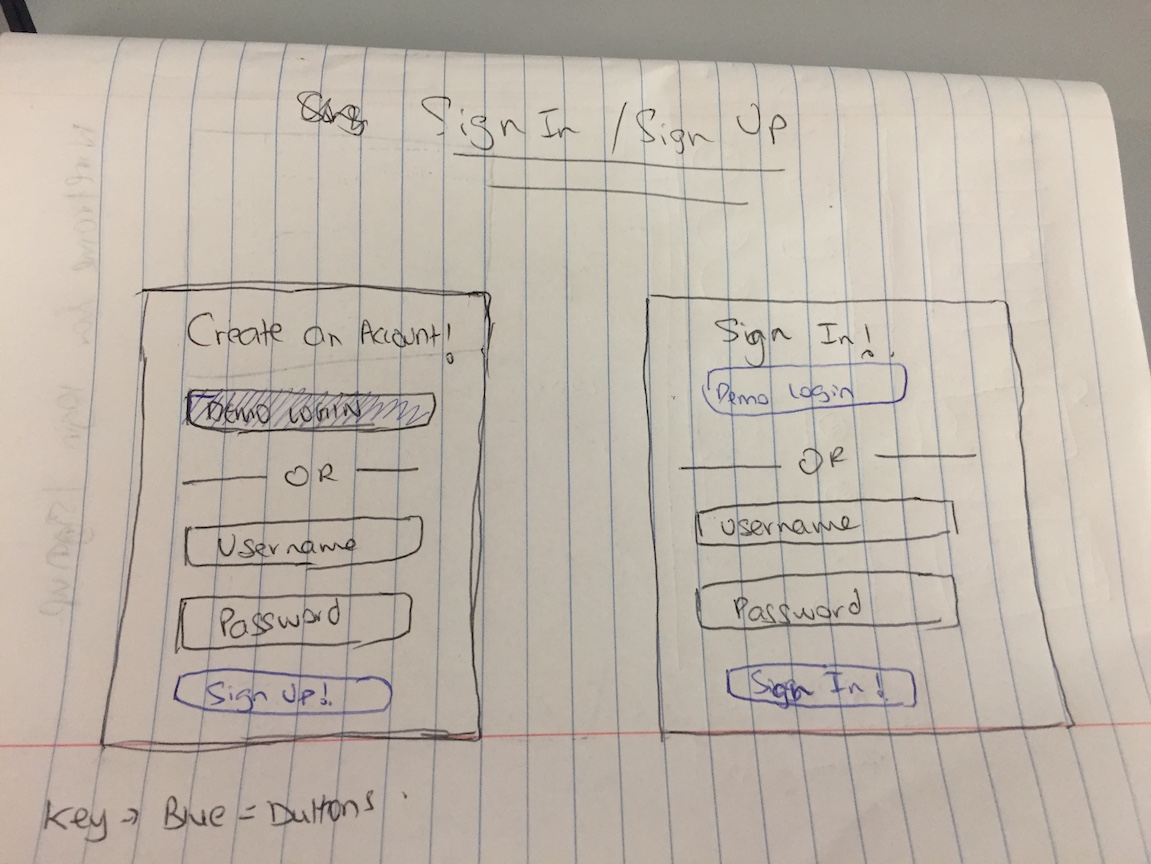 Sign In / Sign Up
Create an Account!
DEMO LOGIN
OR
Username
Password
Sign Up!
Sign In!
Demo Login
OR
Username
Password
Sign In!
Key → Blue = Buttons